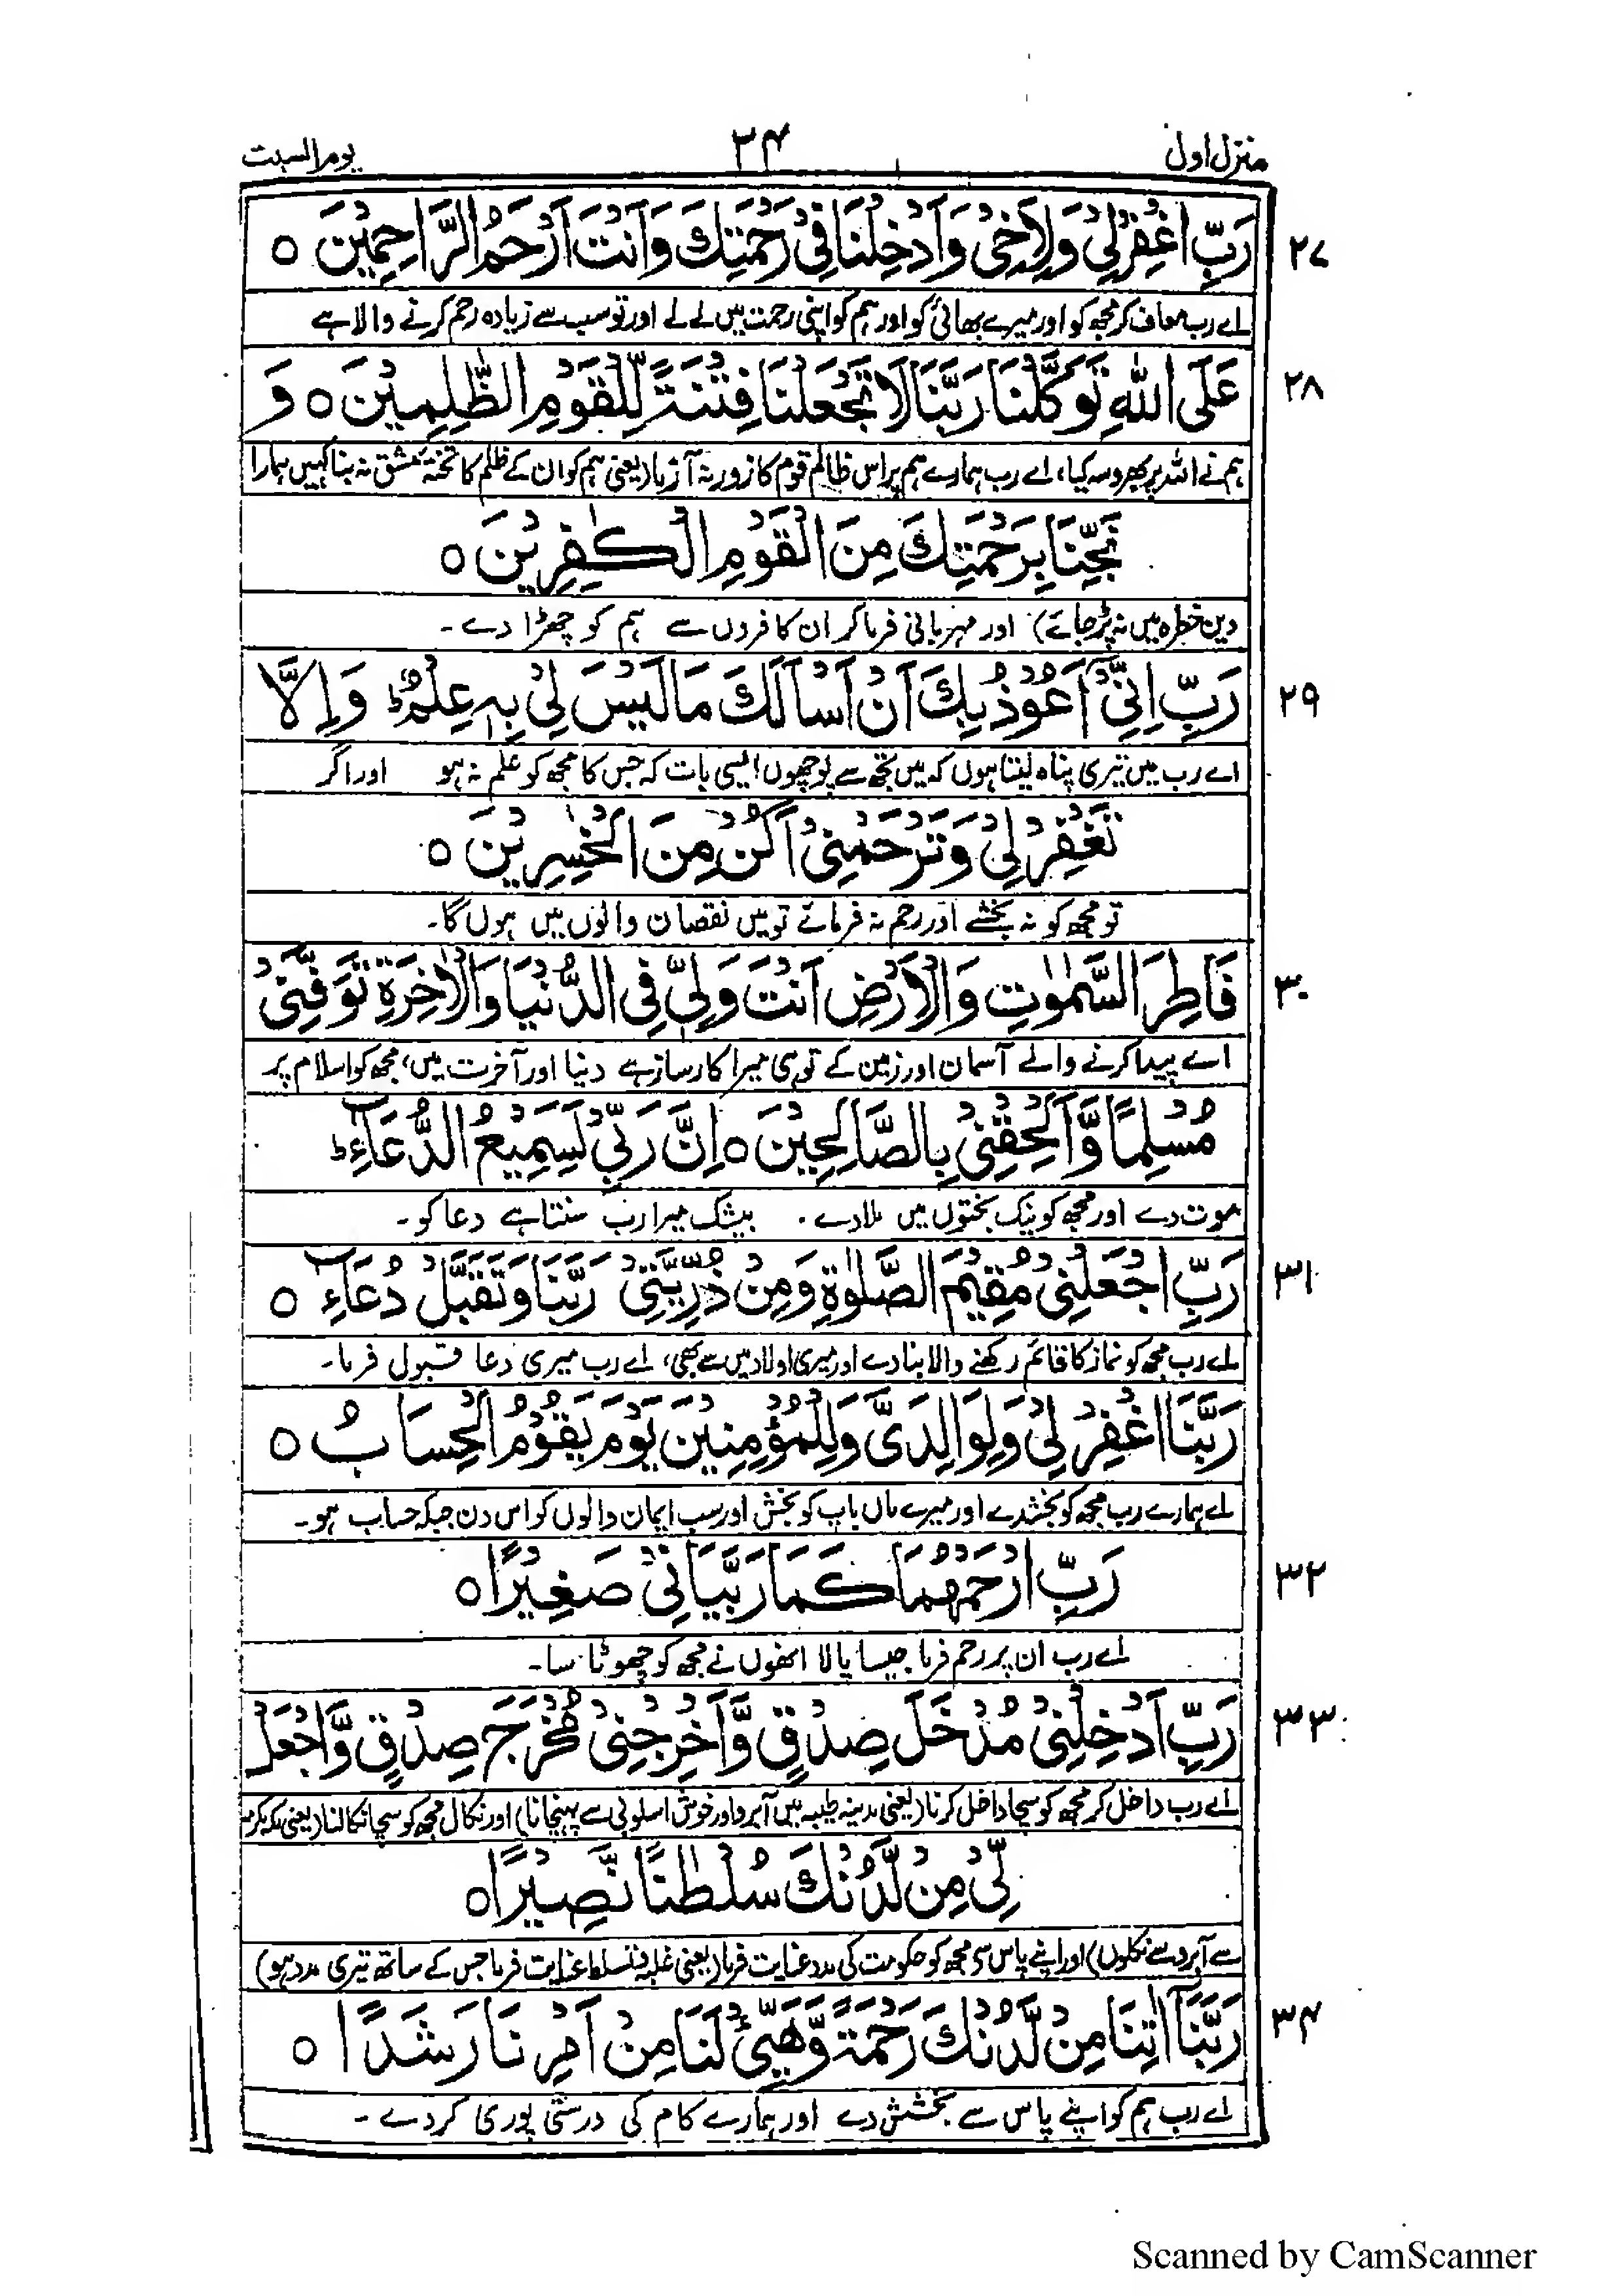 منزل اول
۳۴
یوم السبت
۲۷
رَبِّ اغْفِرْ لِیْ وَلِاَخِیْ وَاَدْخِلْنَا فِیْ رَحْمَتِكَ وَاَنْتَ اَرْحَمُ الرَّاحِمِیْنَ ○
اے رب معاف کر مجھ کو اور میرے بھائی کو اور ہم کو اپنی رحمت میں لے لے اور تو سب سے زیادہ رحم کرنے والا ہے
۲۸
عَلَی اللّٰهِ تَوَكَّلْنَا رَبَّنَا لَا تَجْعَلْنَا فِتْنَةً لِّلْقَوْمِ الظّٰلِمِیْنَ ○ وَ
ہم نے اللہ پر بھروسہ کیا، اے رب ہمارے ہم پر اس ظالم قوم کا زور نہ آزما (یعنی ہم کو ان کے ظلم کا تختۂ مشق نہ بنا کہیں ہمارا
نَجِّنَا بِرَحْمَتِكَ مِنَ الْقَوْمِ الْكٰفِرِیْنَ ○
دین خطرہ میں نہ پڑ جائے) اور مہربانی فرما کر ان کافروں سے ہم کو چھڑا دے ۔
۲۹
رَبِّ اِنِّیْۤ اَعُوْذُ بِكَ اَنْ اَسْاَلَكَ مَا لَیْسَ لِیْ بِهٖ عِلْمٌ ؕ وَاِلَّا
اے رب میں تیری پناہ لیتا ہوں کہ میں تجھ سے پوچھوں ایسی بات کہ جس کا مجھ کو علم نہ ہو اور اگر
تَغْفِرْ لِیْ وَتَرْحَمْنِیْۤ اَكُنْ مِّنَ الْخٰسِرِیْنَ ○
تو مجھ کو نہ بخشے اور رحم نہ فرمائے تو میں نقصان والوں میں ہوں گا۔
۳۰
فَاطِرَ السَّمٰوٰتِ وَالْاَرْضِ اَنْتَ وَلِیّٖ فِی الدُّنْیَا وَالْاٰخِرَةِ تَوَفَّنِیْ
اے پیدا کرنے والے آسمان اور زمین کے تو ہی میرا کارساز ہے دنیا اور آخرت میں، مجھ کو اسلام پر
مُسْلِمًا وَّاَلْحِقْنِیْ بِالصَّالِحِیْنَ ○ اِنَّ رَبِّیْ لَسَمِیْعُ الدُّعَآءِ ؕ
موت دے اور مجھ کو نیک بختوں میں ملا دے ۔ بیشک میرا رب سنتا ہے دعا کو ۔
۳۱
رَبِّ اجْعَلْنِیْ مُقِیْمَ الصَّلٰوةِ وَمِنْ ذُرِّیَّتِیْ رَبَّنَا وَتَقَبَّلْ دُعَآءِ ○
اے رب مجھ کو نماز کا قائم رکھنے والا بنا دے اور میری اولاد میں سے بھی، اے رب میری دعا قبول فرما۔
رَبَّنَا اغْفِرْ لِیْ وَلِوَالِدَیَّ وَلِلْمُؤْمِنِیْنَ یَوْمَ یَقُوْمُ الْحِسَابُ ○
اے ہمارے رب مجھ کو بخشدے اور میرے ماں باپ کو بخش اور سب ایمان والوں کو اس دن جبکہ حساب ہو۔
۳۲
رَبِّ ارْحَمْهُمَا كَمَا رَبَّیَانِیْ صَغِیْرًا ○
اے رب ان پر رحم فرما جیسا پالا انھوں نے مجھ کو چھوٹا سا۔
۳۳
رَبِّ اَدْخِلْنِیْ مُدْخَلَ صِدْقٍ وَّاَخْرِجْنِیْ مُخْرَجَ صِدْقٍ وَّاجْعَلْ
اے رب داخل کر مجھ کو سچا داخل کرنا (یعنی مدینہ طیبہ میں آبرو اور خوش اسلوبی سے پہنچانا) اور نکال مجھ کو سچا نکالنا (یعنی مکہ مکرمہ
لِّیْ مِنْ لَّدُنْكَ سُلْطٰنًا نَّصِیْرًا ○
سے آبرو سے نکلوں) اور اپنے پاس سے مجھ کو حکومت کی مدد عنایت فرما (یعنی غلبہ و تسلط عنایت فرما جس کے ساتھ تیری مدد ہو)
۳۴
رَبَّنَاۤ اٰتِنَا مِنْ لَّدُنْكَ رَحْمَةً وَّهَیِّئْ لَنَا مِنْ اَمْرِنَا رَشَدًا ○
اے رب ہم کو اپنے پاس سے بخشش دے اور ہمارے کام کی درستی پوری کر دے ۔
Scanned by CamScanner